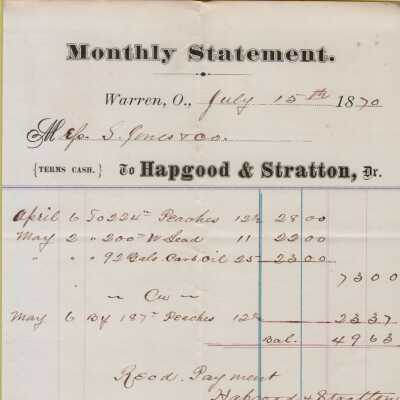 Monthly Statement.
Warren, O., July 15th 1870
Mess. S. Jones & Co.
{TERMS CASH.} To Hapgood & Stratton, Dr.
April 6 To 224 lb Peaches 12½ 28 00
May 2 " 200 lb W Lead 11 22 00
" " " 92 Gals. Carb Oil 25 23 00
73 00
~ Cr ~
May 6 By 187 lb Peaches 12½ 23 37
Bal. 49 63
Recd. Payment
Hapgood & Stratton